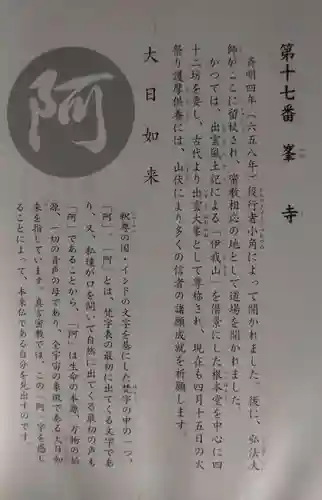 第十七番 峯寺
斉明四年(六五八年)役行者小角によって開かれました。後に、弘法大
師がここに留杖され、密教相応の地として道場を開かれました。
かつては、出雲風土記による「伊我山」を借景にした根本堂を中心に四
十二坊を要し、古代より出雲大峯として尊称され、現在も四月十五日の火
祭り護摩供養には、山伏により多くの信者の諸願成就を祈願します。
大日如来
阿
釈尊の国・インドの文字を基にした梵字の中の一つ、
「阿」。「阿」とは、梵字表の最初に出てくる文字であ
り、又、私達が口を開いて自然に出てくる最初の声も
「阿」であることから、「阿」は生命の本源、万物の始
源、一切の音声の母であり、全宇宙の象徴である大日如
来を指しています。真言密教では、この「阿」字を感じ
ることによって、本来仏である自分を見出すのです。